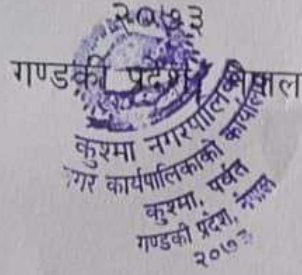 २०७३
गण्डकी प्रदेश, नेपाल
कुश्मा नगरपालिका
नगर कार्यपालिकाको कार्यालय
कुश्मा, पर्वत
गण्डकी प्रदेश, नेपाल
२०७३